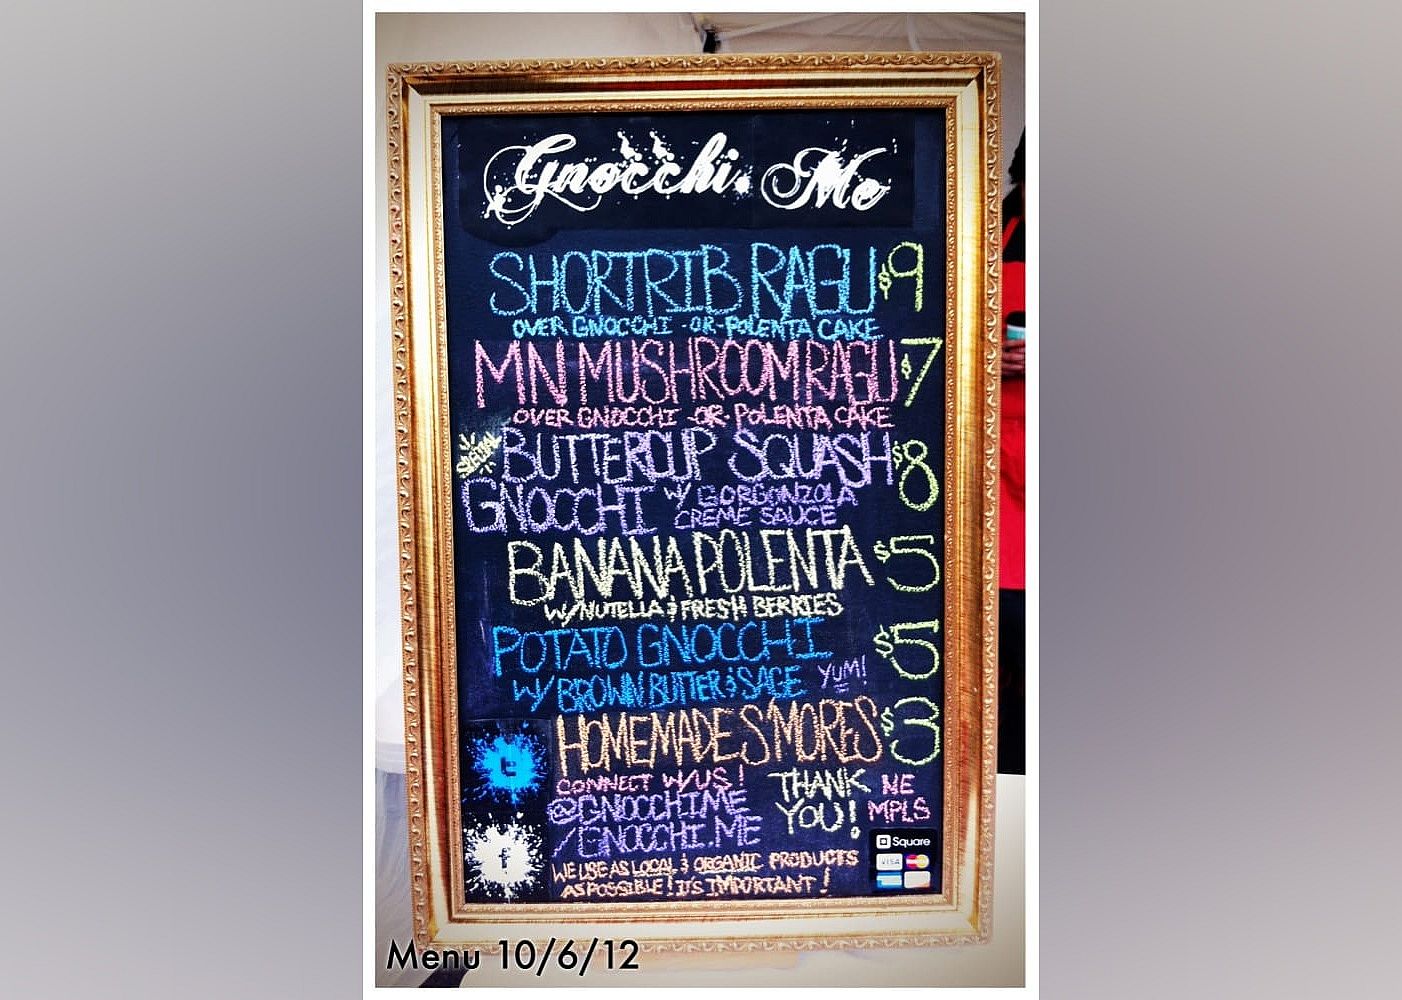 Gnocchi. Me
SHORTRIB RAGU $9
OVER GNOCCHI -OR- POLENTA CAKE
MN MUSHROOM RAGU $7
OVER GNOCCHI -OR- POLENTA CAKE
SPECIAL BUTTERCUP SQUASH $8
GNOCCHI W/ GORGONZOLA
CREME SAUCE
BANANA POLENTA $5
W/NUTELLA & FRESH BERRIES
POTATO GNOCCHI $5
W/ BROWN BUTTER & SAGE YUM!
HOMEMADE S'MORES $3
t
CONNECT W/US!
@GNOCCHIME
/GNOCCHI.ME
THANK
YOU!
NE
MPLS
f
Square
VISA
WE USE AS LOCAL & ORGANIC PRODUCTS
AS POSSIBLE! IT'S IMPORTANT!
Menu 10/6/12